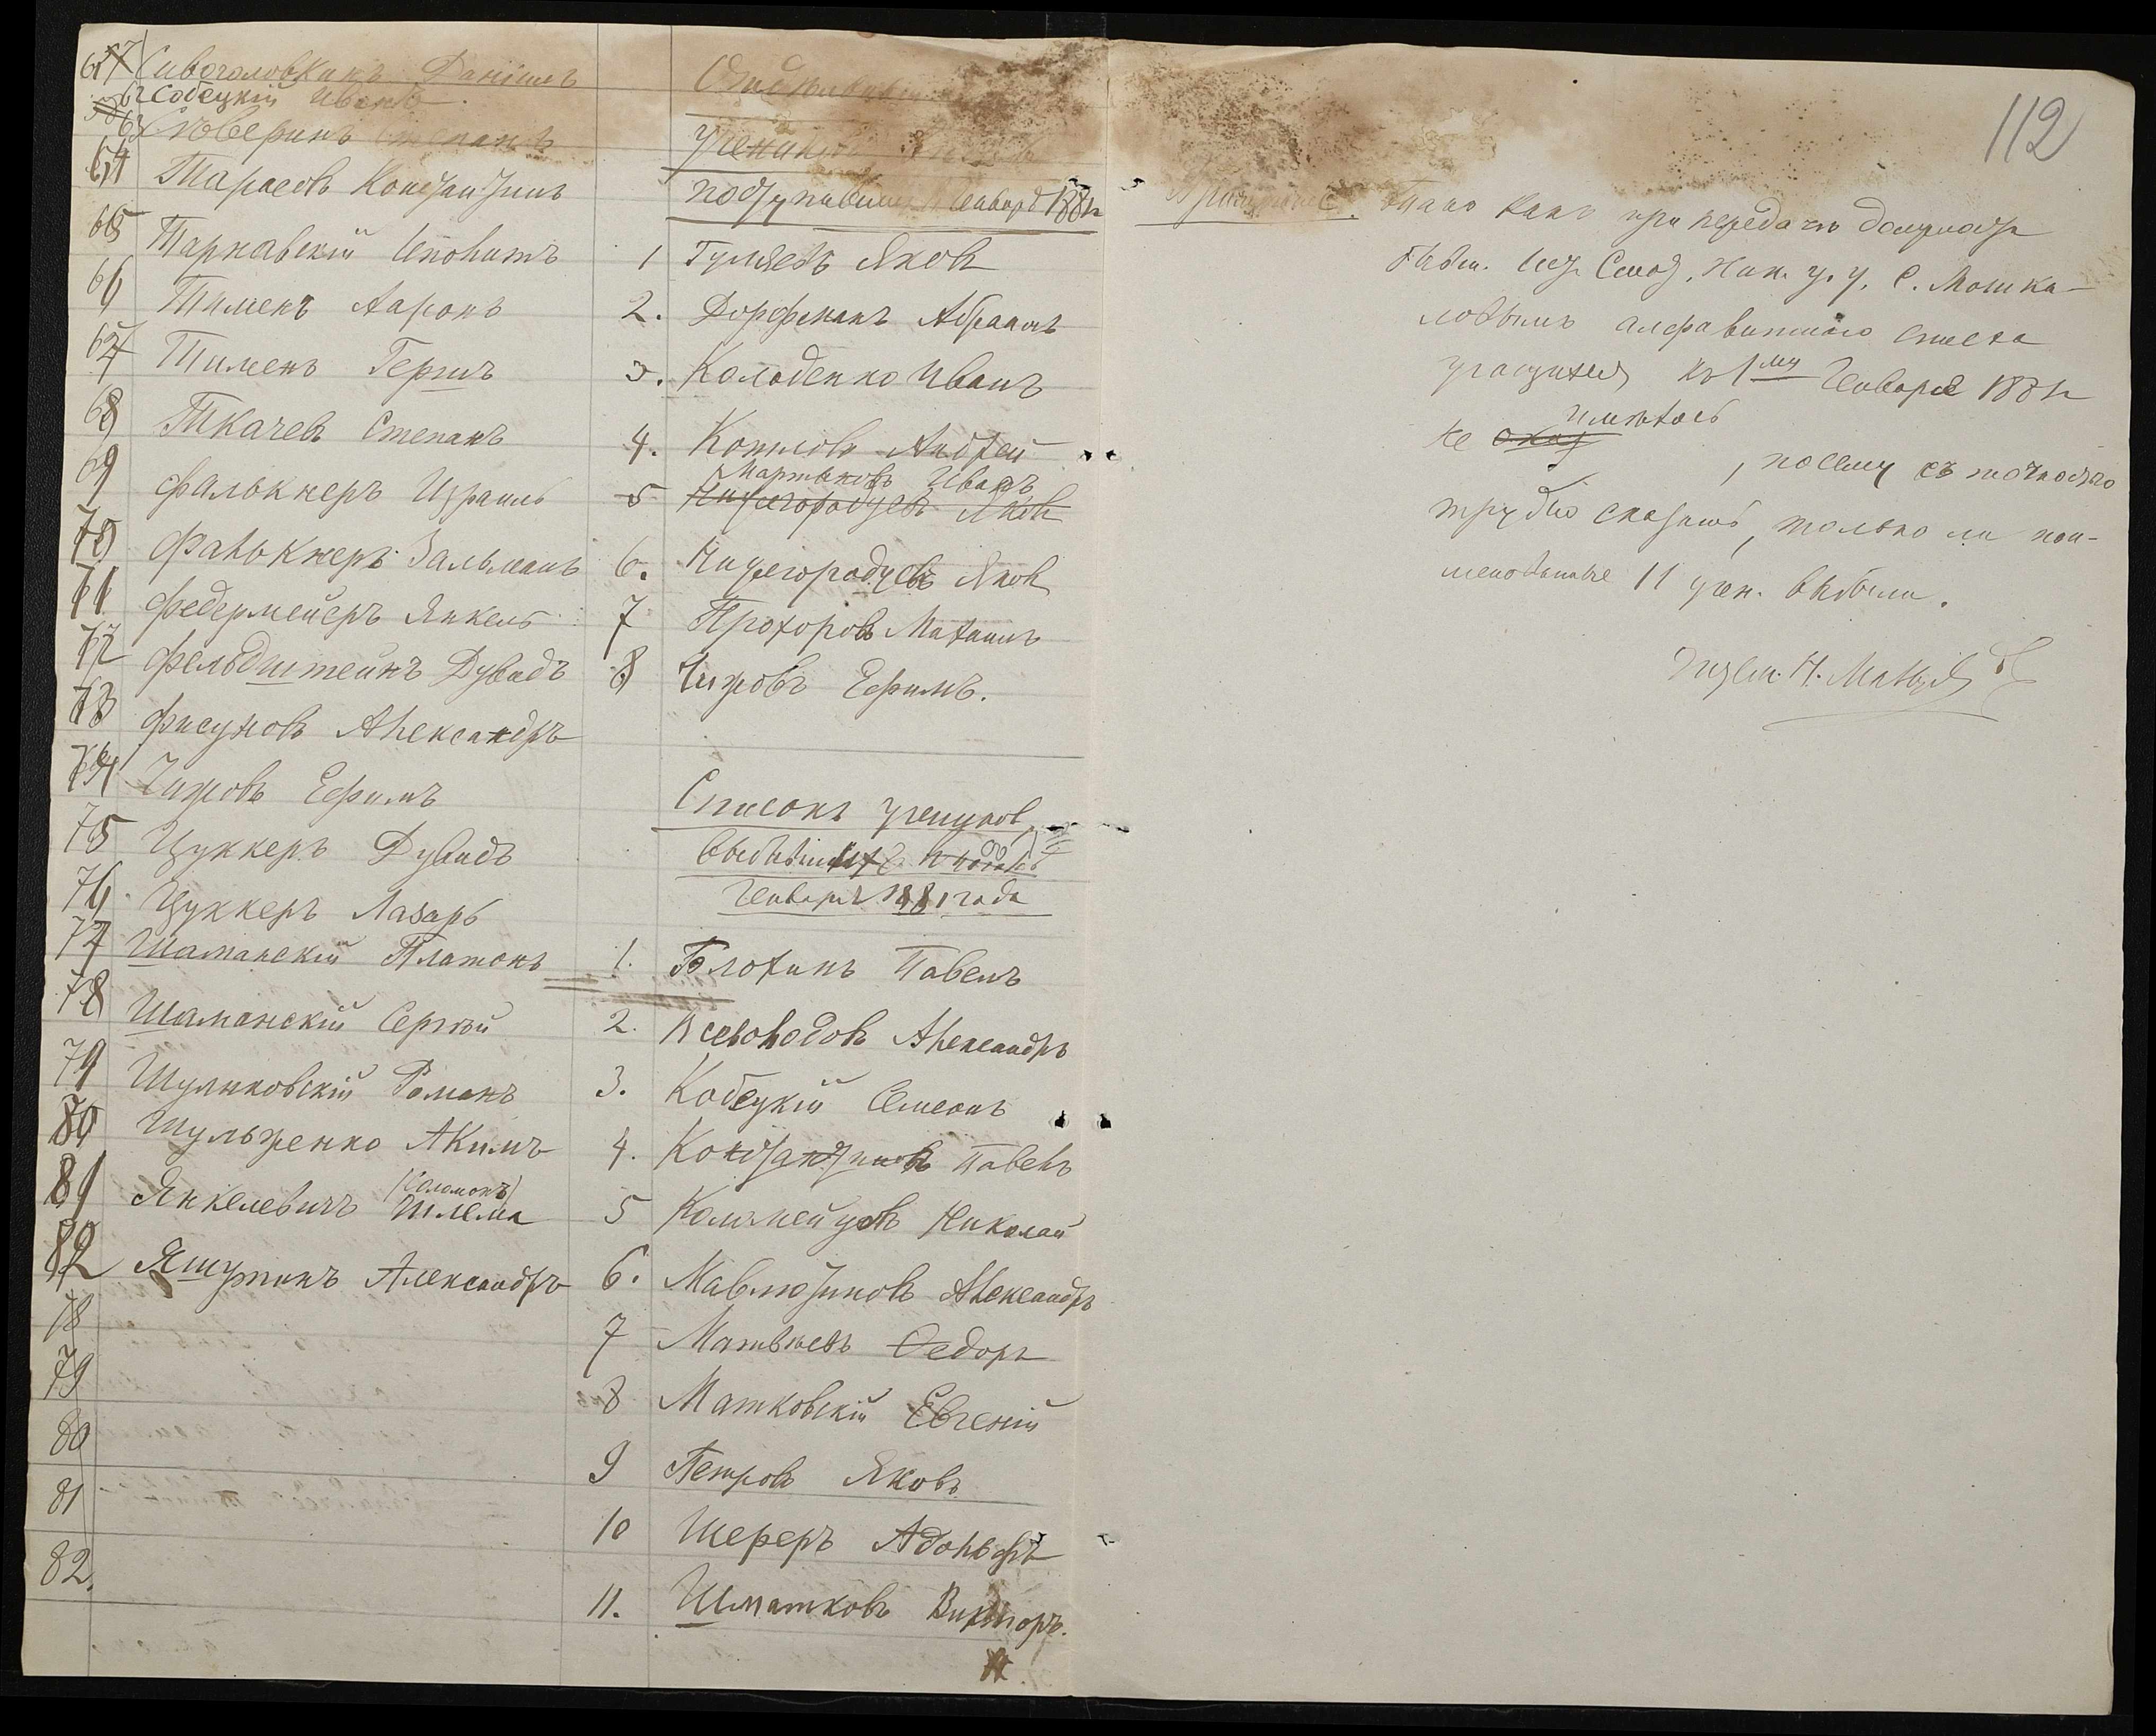 61 Сивоголовкинъ Даніилъ
62 Собецкій Иванъ.
63 Съверинъ Степанъ
64 Тарасовъ Константинъ
65 Тарнавскій Ипполитъ
66 Тименъ Ааронъ
67 Тименъ Гершъ
68 Ткачевъ Степанъ
69 Фалькнеръ Израиль
70 Фалькнеръ Зальманъ
71 Федермейеръ Янкель
72 Фельдштейнъ Дувидъ
73 Фисуновъ Александръ
74 Чижовъ Ефимъ
75 Цуккеръ Дувидъ
76 Цуккеръ Лазарь
77 Шаманскій Платонъ
78 Шаманскій Сергѣй
79 Шуликовскій Романъ
80 Шульженко Акимъ
81 Янкелевичъ (Соломонъ) Шлема
82 Яшутинъ Александръ
78
79
80
81
82.
учениковъ
поступившихъ Январѣ 1881 г
1 Гуляевъ Яковъ
2. Дорфманъ Абрамъ
3. Колоденко Иванъ
4. Копыловъ Андрей
Мартыновъ Иванъ
5 Нижегородцевъ Яковъ
6. Нижегородцевъ Яковъ
7 Прохоровъ Михаилъ
8 Чижовъ Ефимъ.
Списокъ учениковъ,
выбывшихъ
Январѣ 1881 года
1. Блохинъ Павелъ
2. Всеволодовъ Александръ
3. Кобецкій Семенъ
4. Константиновъ Павелъ
5 Коломейцовъ Николай
6. Мавлютиновъ Александръ
7 Матвѣевъ Федоръ
8 Матковскій Евгеній
9 Петровъ Яковъ
10 Шереръ Адольфъ
11. Шматковъ Викторъ.
112
Примѣчаніе. Такъ какъ при передачѣ должности
бывш. Смот. Ник. у. у. С. Мошка-
ловымъ алфавитнаго списка
учащихся къ 1му Января 1881 г
имѣлось
не оказ , посему съ точностью
трудно сказать, только ли пои-
менованные 11 учен. выбыли.